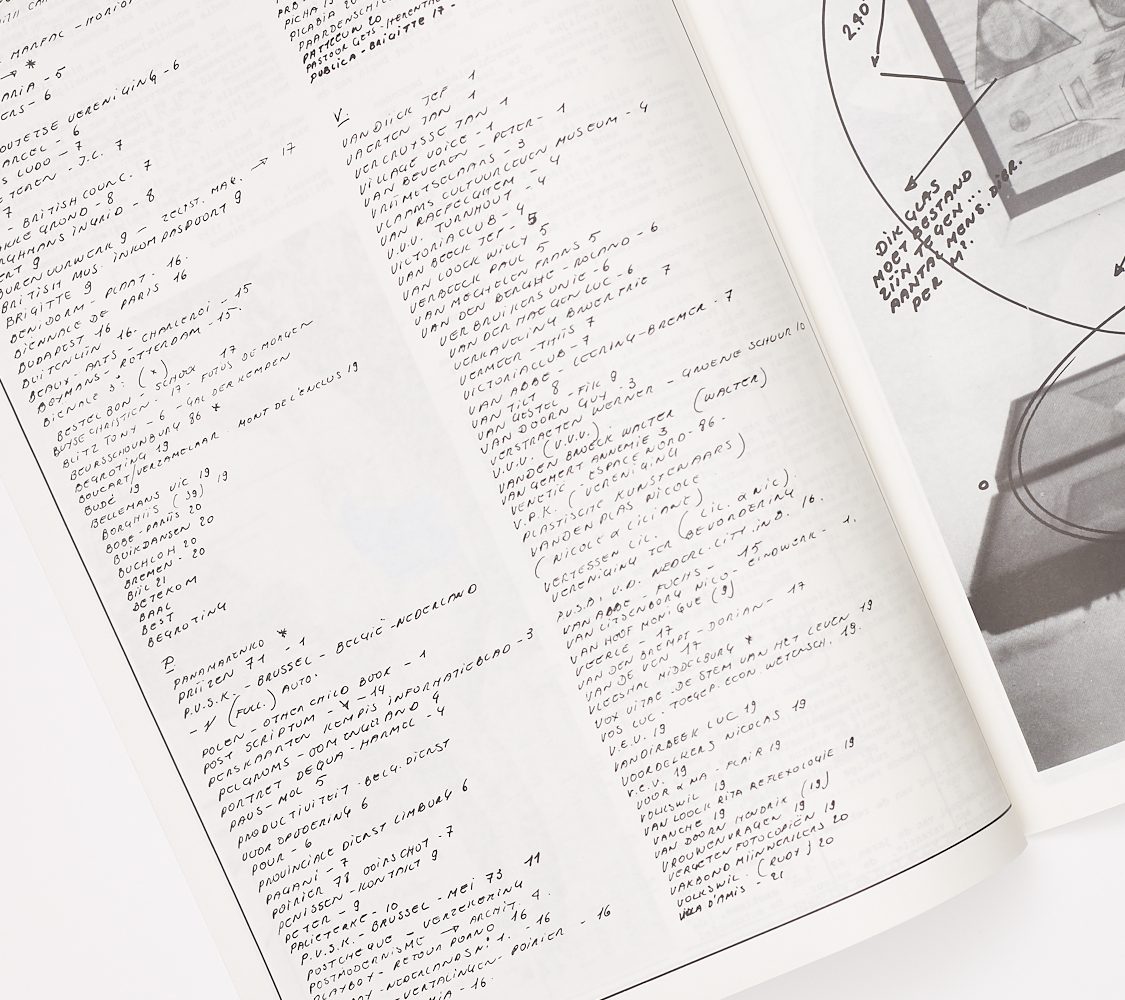 MARFAC - HORIZO
→ *
ARIA - 5
ERS - 6
OUTETSE VERENIGING - 6
ARCEL - 6
S LUDO - 7
TEREN - J.C. 7
7
- BRITISH COUNC. 7
AKKE GROND - 8
RGHMANS INGRID - 8
ERT 9
BUREN VUURWERK 9 - ZELST. MAR. → 17
BRITISH MUS. INKOM PASPOORT 9
BRIGITTE 9
BENIDORM - PLANT - 16.
BIENNALE DE PARIS 16
BUDAPEST 16
BUITENLIN 16.
BEAUX-ARTS - CHARLEROI - 15
BOYMANS - ROTTERDAM - 15.
BIENNALE 3: (x)
BESTELBON - SCHOOL 17
BUYSE CHRISTIEN - 17 - FOTOS DE MORGEN
BLITZ TONY - 6 - GAL DER KEMPEN
BEURSSCHOUWBURG 86 *
BEGROTING 19
BOUCART/VERZAMELAAR. MONT DE L'ENCLUS 19
BUDÉ 19
BELLEMANS VIC 19
BORGHIJS (39) 19
BOBE - PARIJS 20
BUIKDANSEN 20
BUCHLOH 20
BREMEN - 20
BIJL 21
BETEKOM
BAAL
BEST
BEGROTING
P
PANAMARENKO *
PRIJZEN 71 - 1
P.V.S.K. - BRUSSEL - BELGIË - NEDERLAND
- 1 (FULL.) AUTO.
POLEN - OTHER CHILD BOOK - 1
POST SCRIPTUM - 14
PERSKAARTEN KEMPIS INFORMATIEBLAD - 3
PELGROMS - OOM ENGELAND 4
PORTRET DEQUA - HARMEL - 4
PAUS - MOL 5
PRODUCTIVITEIT - BELG. DIENST
VOOR OPVOERING 6
POUR - 6
PROVINCIALE DIENST LIMBURG 6
PAGANI - 7
POIRIER 78 OOIRSCHOT - 7
PENISSEN - KONTAKT 9
PETER - 9
PALIETERKE - 10
P.V.S.K. - BRUSSEL - MEI 73 11
POSTCHEQUE - VERZEKERING
POSTMODERNISME → ARCHIT. 4.
PLAYBOY - RETOUR PORNO 16
BOY - NEDERLANDS N: 1. - 16
- VERTALINGEN - POIRIER - 16
- 16.
PICASSO
PICABIA 20
PAARDENSCHI
PATTEEUW 20
PASTOOR GEYS - HERENTAL
PUBLICA - BRIGITTE 17 -
V.
VAN DIJCK JEF 1
VAERTEN JAN 1
VERCRUYSSE JAN 1
VILLAGE VOICE - 1
VAN BEVEREN - PETER - 1
VRIJMETSELAARS - 3
VLAAMS CULTUURLEVEN MUSEUM - 4
VAN RAEFELGHEM - 4
V.V.V. TURNHOUT - 4
VICTORIACLUB - 4
VAN BEECK JEF - 5
VAN LOOCK WILLY 5
VERBEECK PAUL 5
VAN MECHELEN FRANS 5
VAN DEN BERGHE - ROLAND - 6
VERBRUIKERSUNIE - 6
VAN DER HAEGEN LUC - 6
VERKAVELING BROERTRIE 7
VERMEER - THIJS 7
VICTORIACLUB - 7
VAN ABBE - LEERING - BREMER - 7
VAN TILT 8
VAN GESTEL - FIK 9
VAN DOORN GUY - 3
VERSTRAETEN WERNER - GROENE SCHUUR 10
V.V.V. (V.V.V.)
VANDEN BROECK WALTER (WALTER)
VAN GEMERT ANNEMIE 3
VENETIE - ESPACE NORD - 86.
V.P.K. (VERENIGING
PLASTISCHE KUNSTENAARS)
VANDEN PLAS NICOLE
(NICOLE & LILIANE)
VERTESSEN LIL. (LIL. & NIC).
VERENIGING TER BEVORDERING
P.V.S.B. V.D. NEDERL. LITT. IN B. 16.
VAN ABBE - FUCHS - 15
VAN LITSENBORG NICO - EINDWERK - 1.
VAN HOOF MONIQUE (9)
VEERLE - 17
VAN DEN BREMPT - DORIAN - 17
VAN DE VEN 17
VLEESHAL MIDDELBURG *
VOX VITAE - DE STEM VAN HET LEVEN 19
VOS LUC. TOEGEP. ECON. WETENSCH. 19.
V.E.V. 19
VANDIRBEEK LUC 19
VOORDECKERS NICOLAS 19
V.E.V. 19
VOOR & NA. FLAIR 19
VOLKSWIL 19
VAN LOOCK RITA REFLEXOLOGIE 19
VANCHE 19
VAN DOORN HENDRIK (19)
VROUWENVRAGEN 19
VERGETEN FOTOCOPIËN 19
VAKBOND MIJNWERKERS 20
VOLKSWIL. (RUDY) 20
VILLA D'AMIS - 21
2.40
DIK GLAS
MOET BESTAND
ZIJN TEGEN ...
AANTAL MENS. DIER.
PER M².